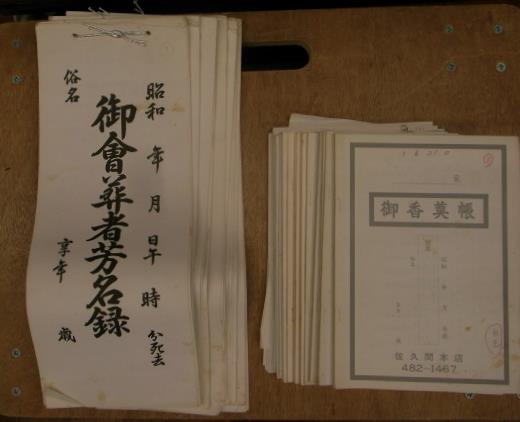 昭和 年 月 日午 時 分死去
御會葬者芳名録
俗名 享年 歳
家
御香奠帳
佐久間本店
482-1467